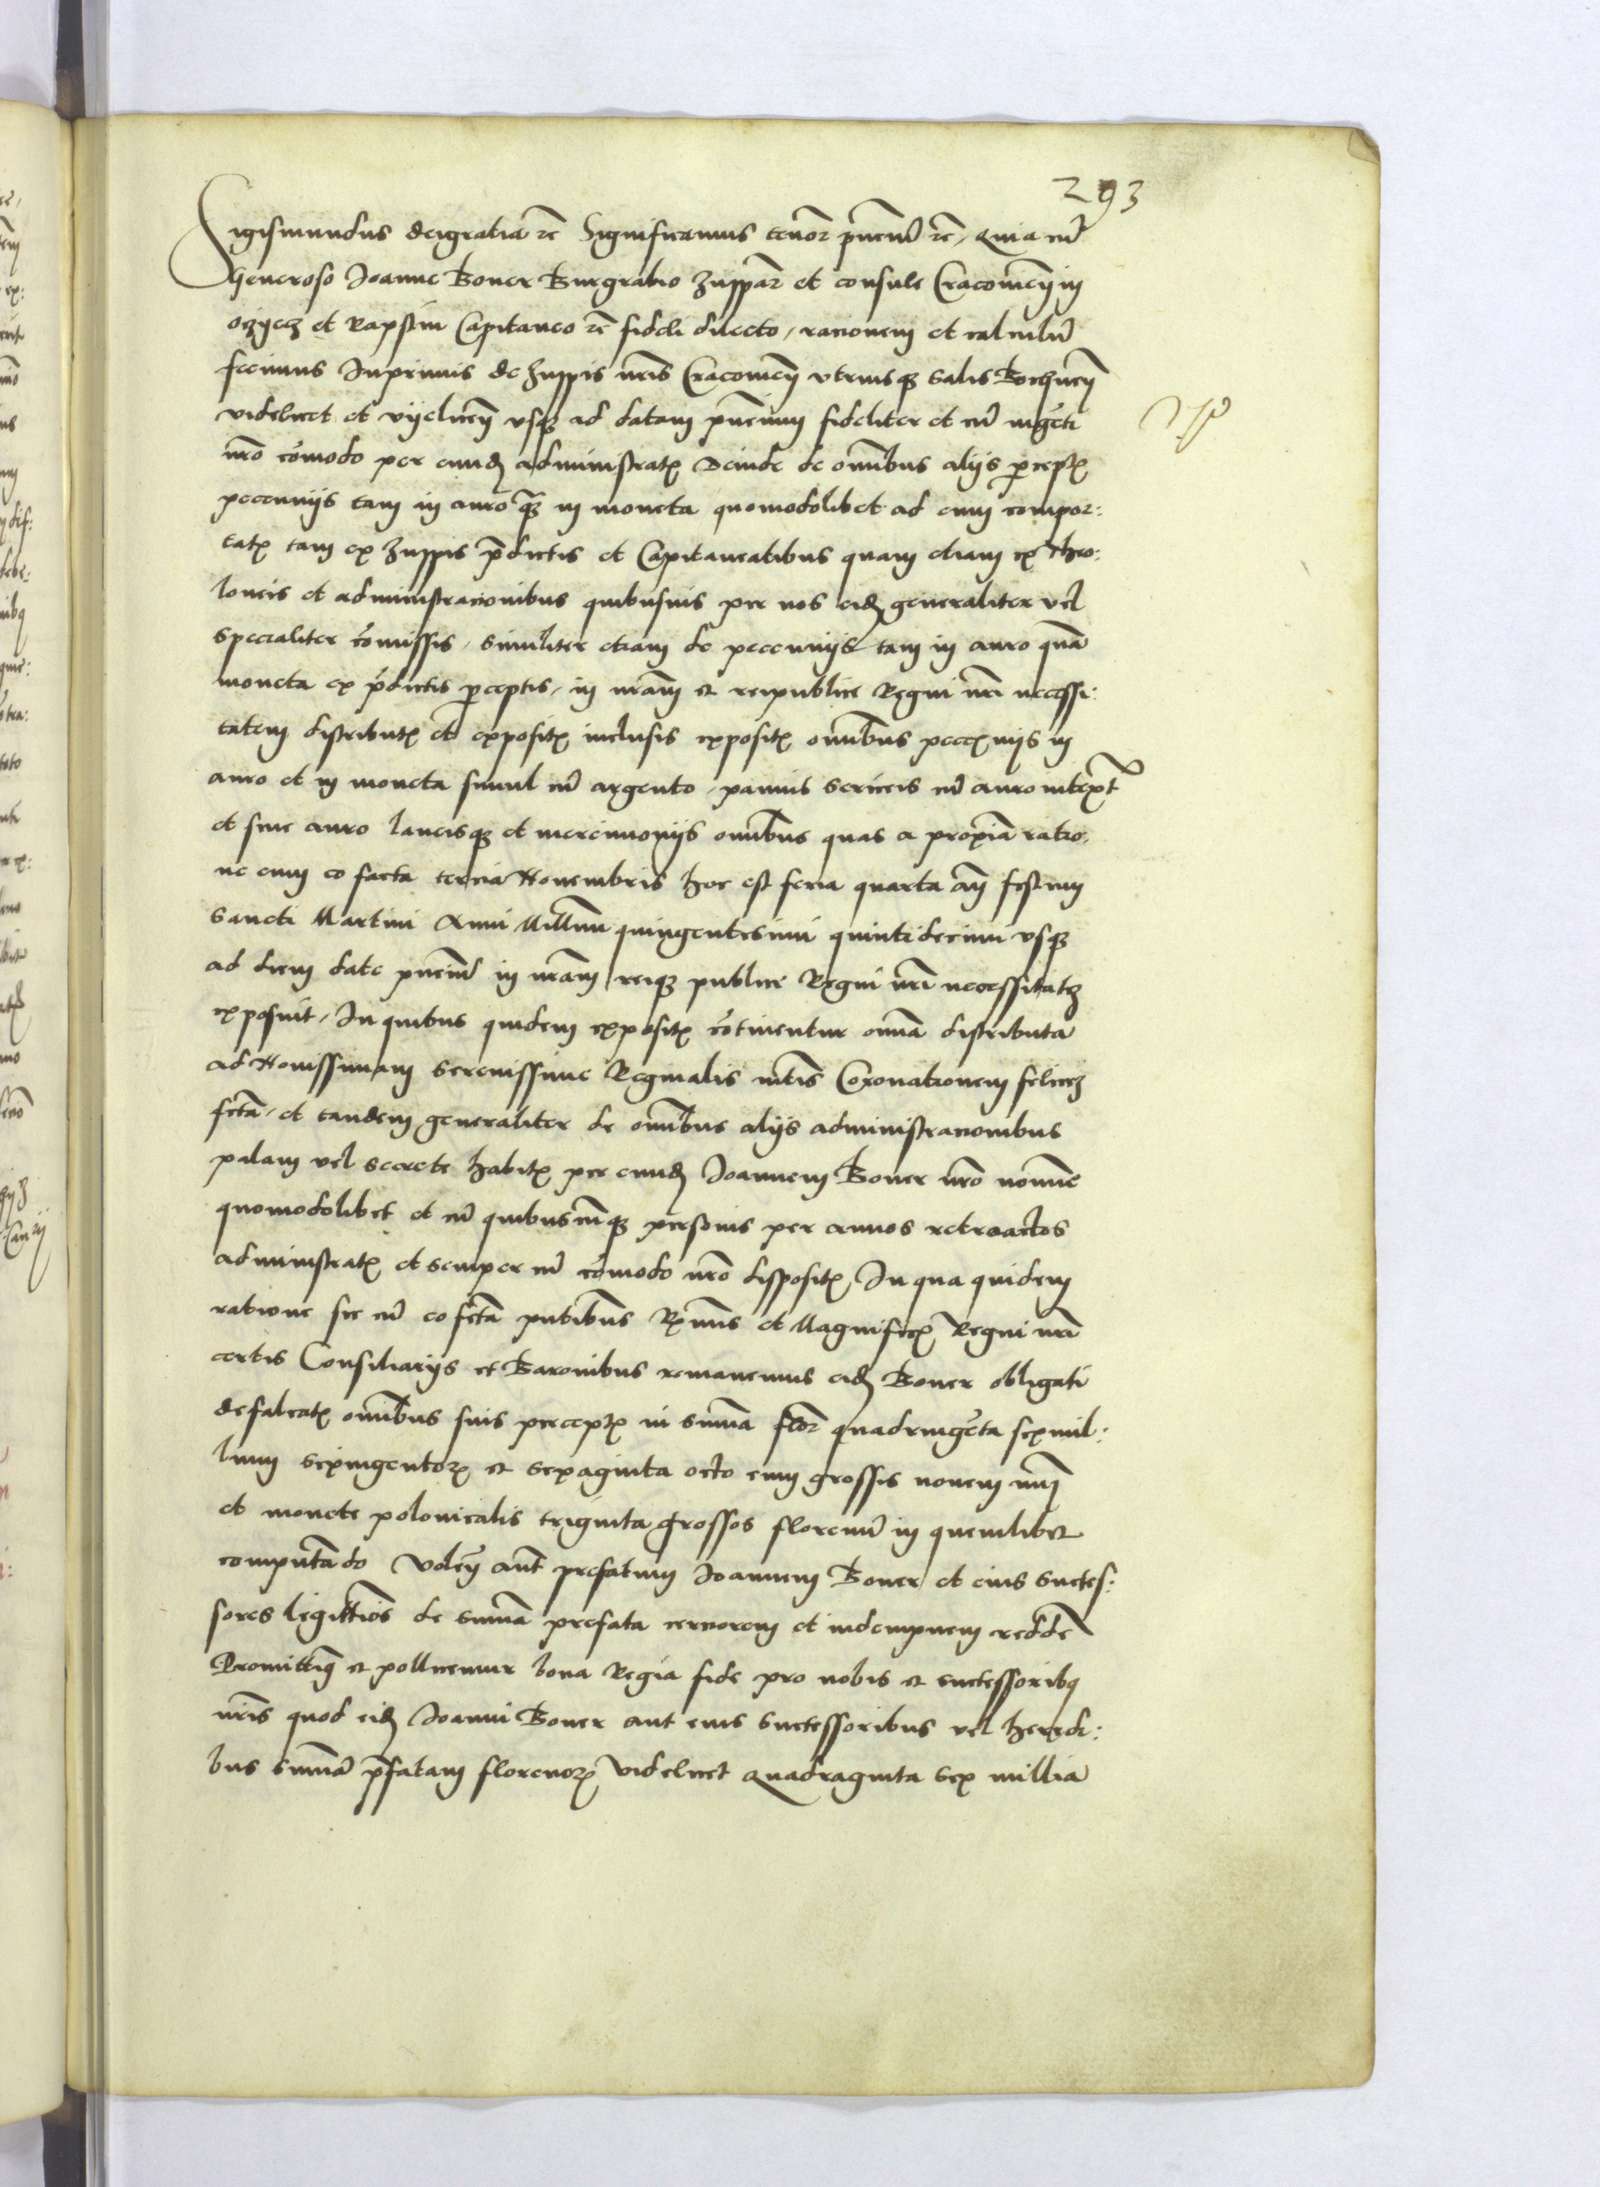 293
Sigismundus dei gratia rc Significamus tenor pntium rc, Quia cu
Generoso Joanne Boner Burgrabio Zuppar et consule Cracovien in
oczyecz et Rapstin Capitaneo rc fideli dilecto, racionem et calculu
fecimus Inprimis de Zuppis nris Cracovien utriusq salis Bochnen
videlicet et vyelicen usq ad datam pntium fideliter et cu ingeti
nro comodo per eund administrat Deinde de omibus alijs pcept
peccunijs tam in auro q in moneta quomodolibet ad eum compor:
tat tam ex Zuppis pdictis et Capitaneatibus quam etiam ex theo:
loneis et administracionibus quibusuis per nos eid generaliter vel
specialiter comissis, similiter etiam de peccunijs tam in auro qua
moneta ex pdictis pceptis, in nram et reipublice Regni nri necessi:
tatem distribut et exposit inclusis exposit omibus peccunijs in
auro et in moneta simul cu argento, pannis sericeis cu auro intext
et sine auro laneisq et mercimonijs omibus quas a proxia ratio,
ne cum eo facta tercia Novembris hoc est feria quarta an festum
Sancti Martini Anni Millmi quingentesimi quintidecimi usq
ad diem date pntium in nram reiq publice Regni nri necessitate
exposuit, In quibus quidem exposit cotinentur omia distributa
ad Novissimam Serenissime Reginalis mtis Coronationem felice
fcta, et tandem generaliter de omibus alijs administracionibus
palam vel secrete habit per eund Joannem Boner nro nomine
quomodolibet et cu quibuscuq personis per annos retroactos
administrat et semper cu comodo nro disposit, In qua quidem
ratione sic cu eo fcta pntibus Rmis et Magnific Regni nri
certis Consiliarijs et Baronibus remanemus eid Boner obligati
defalcat omibus suis percept in suma flor quadringeta sexmil:
lium sexingentor et sexaginta octo cum grossis novem nui
et monete polonicalis triginta grossos florenu in quemlibet
computado Volen aut prefatum Joannem Boner et eius succes:
sores legittios de suma prefata cerciorem et indempnem redde
Promittiq et pollicemur bona Regia fide pro nobis et successorib
nris quod eid Joanni Boner aut eius successoribus vel heredi:
bus suma pfatam florenor videlicet Quadraginta sex millia